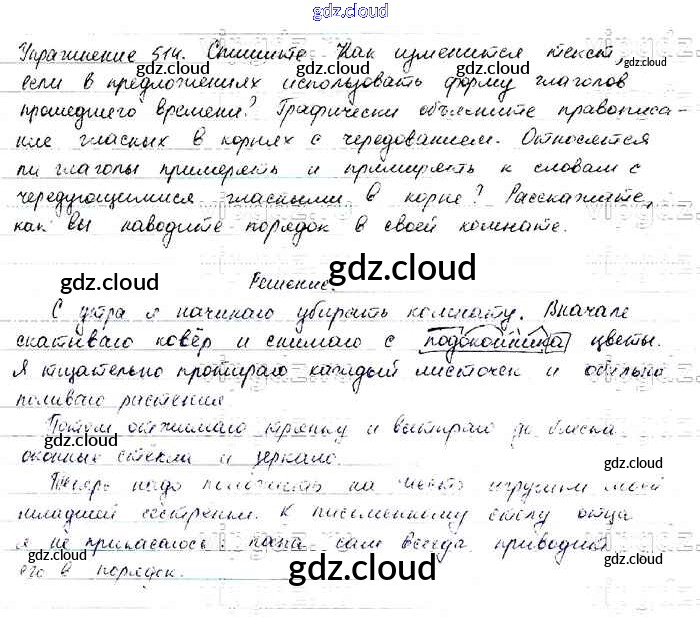 gdz.cloud
Упражнение 514. Спишите. Как изменится текст,
если в предложениях использовать форму глаголов
прошедшего времени? Графически объясните правописа-
ние гласных в корнях с чередованием. Относятся
ли глаголы примерять и примирять к словам с
чередующимися гласными в корне? Расскажите,
как вы наводите порядок в своей комнате.
Решение.
С утра я начинаю убирать комнату. Вначале
скатываю ковёр и снимаю с подоконника цветы.
Я тщательно протираю каждый листочек и обильно
поливаю растения
Потом отжимаю тряпку и вытираю до блеска
оконные стёкла и зеркало.
Теперь надо положить на место игрушки моей
младшей сестрёнки. К письменному столу отца
я не прикасаюсь: папа сам всегда приводит
его в порядок.
gdz.cloud